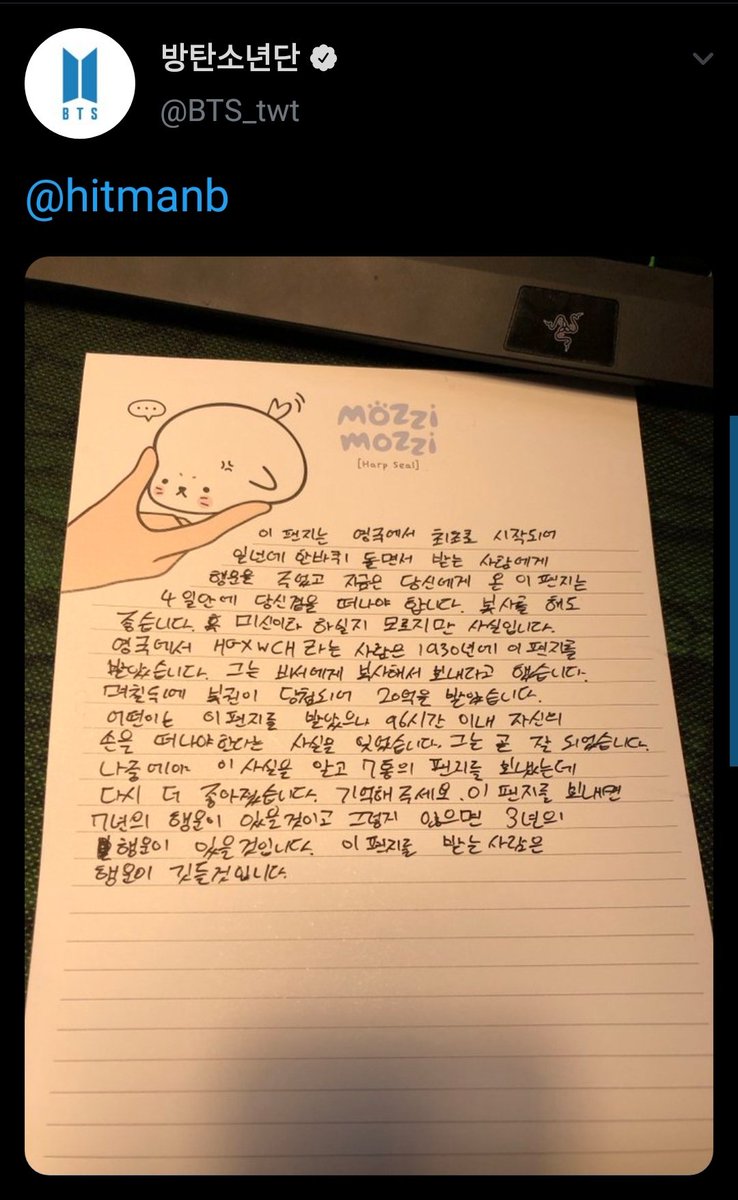 방탄소년단
@BTS_twt
BTS
@hitmanb
mözzi
mozzi
[Harp Seal]
이 편지는 영국에서 최초로 시작되어
일년에 한바퀴 돌면서 받는 사람에게
행운을 주었고 지금은 당신에게 온 이 편지는
4일안에 당신곁을 떠나야 합니다. 복사를 해도
좋습니다. 미신이라 하실지 모르지만 사실입니다.
영국에서 HGXWCH라는 사람은 1930년에 이 편지를
받았습니다. 그는 비서에게 복사해서 보내라고 했습니다.
며칠뒤에 복권이 당첨되어 20억을 받았습니다.
어떤이는 이 편지를 받았으나 96시간 이내 자신의
손을 떠나야 한다는 사실을 잊었습니다. 그는 곧 잘 되었습니다.
나중에야 이 사실을 알고 7통의 편지를 보냈는데
다시 더 좋아졌습니다. 기억해주세요. 이 편지를 보내면
7년의 행운이 있을것이고 그렇지 않으면 3년의
행운이 있을것입니다. 이 편지를 받는 사람은
행운이 깃들것입니다.